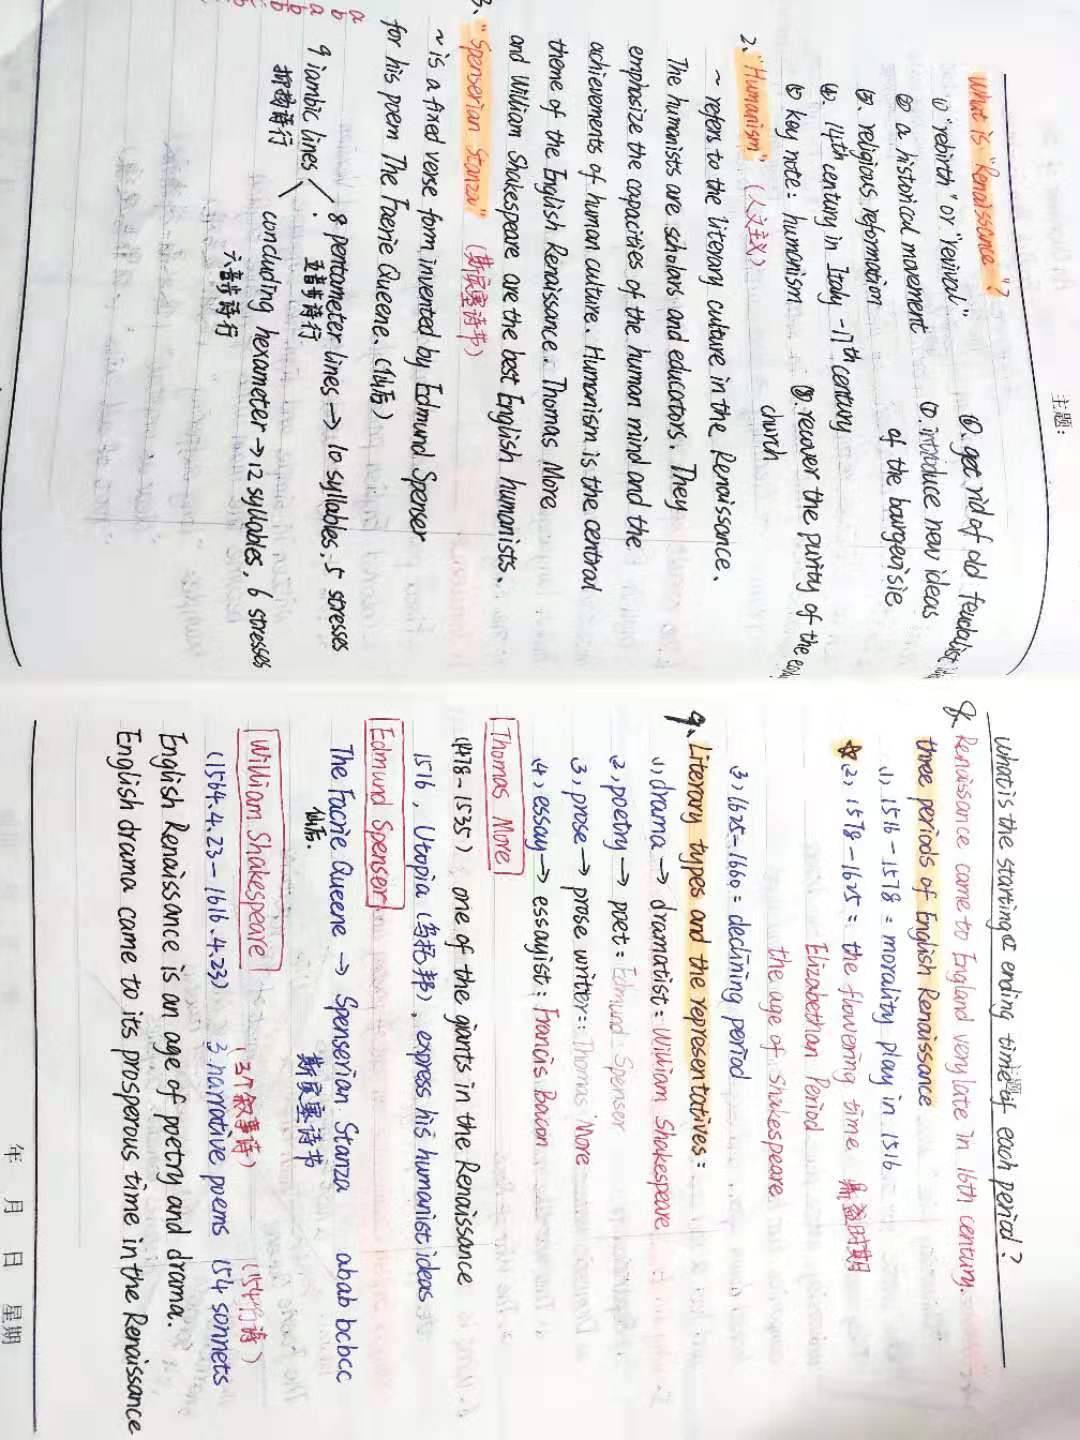 主题:
What is "Renaissance"?
① "rebirth" or "revival"
② a historical movement
③. religious reformation
④. 14th century in Italy - 17th century
⑤ key note: humanism
⑥. get rid of old feudalist
⑦. introduce new ideas
of the bourgeoisie
⑧. recover the purity of the
church
2、"Humanism" (人文主义)
~ refers to the literary culture in the Renaissance.
The humanists are scholars and educators. They
emphasize the capacities of the human mind and the
achievements of human culture. Humanism is the central
theme of the English Renaissance. Thomas More
and William Shakespeare are the best English humanists.
3、"Spenserian Stanza" (斯宾塞诗节)
~ is a fixed verse form invented by Edmund Spenser
for his poem The Faerie Queene. (仙后)
9 iambic lines
抑扬格诗行
8 pentameter lines → 10 syllables, 5 stresses
五音步诗行
concluding hexameter → 12 syllables, 6 stresses
六音步诗行
a
b
a
b
b
主题:
What is the starting & ending time of each period?
8. Renaissance come to England very late in 16th century.
three periods of English Renaissance
(1), 1516-1578 = morality play in 1516
☆(2), 1578-1625 = the flowering time 鼎盛时期
Elizabethan Period
the age of Shakespeare
(3), 1625-1660 = declining period
9、Literary types and the representatives:
(1), drama → dramatist: William Shakespeare
(2), poetry → poet: Edmund Spenser
(3), prose → prose writer: Thomas More
(4), essay → essayist: Francis Bacon
Thomas More
(1478-1535) one of the giants in the Renaissance
1516, Utopia (乌托邦), express his humanist ideas
Edmund Spenser
The Faerie Queene → Spenserian Stanza abab bcbcc
仙后. 斯宾塞诗节
William Shakespeare
(3个叙事诗) (154行诗)
(1564.4.23-1616.4.23) 3 narrative poems 154 sonnets
English Renaissance is an age of poetry and drama.
English drama came to its prosperous time in the Renaissance
年 月 日 星期